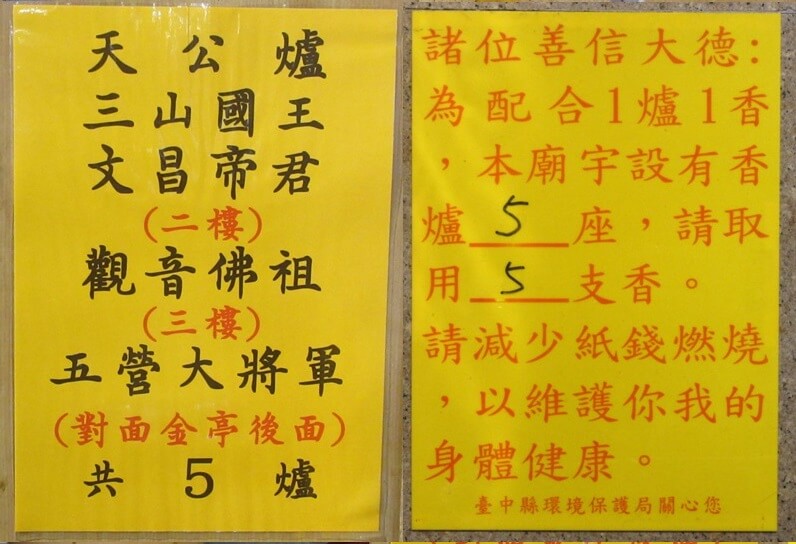 天公爐
三山國王
文昌帝君
(二樓)
觀音佛祖
(三樓)
五營大將軍
(對面金亭後面)
共5爐
諸位善信大德:
為配合1爐1香
，本廟宇設有香
爐5座，請取
用5支香。
請減少紙錢燃燒
，以維護你我的
身體健康。
臺中縣環境保護局關心您